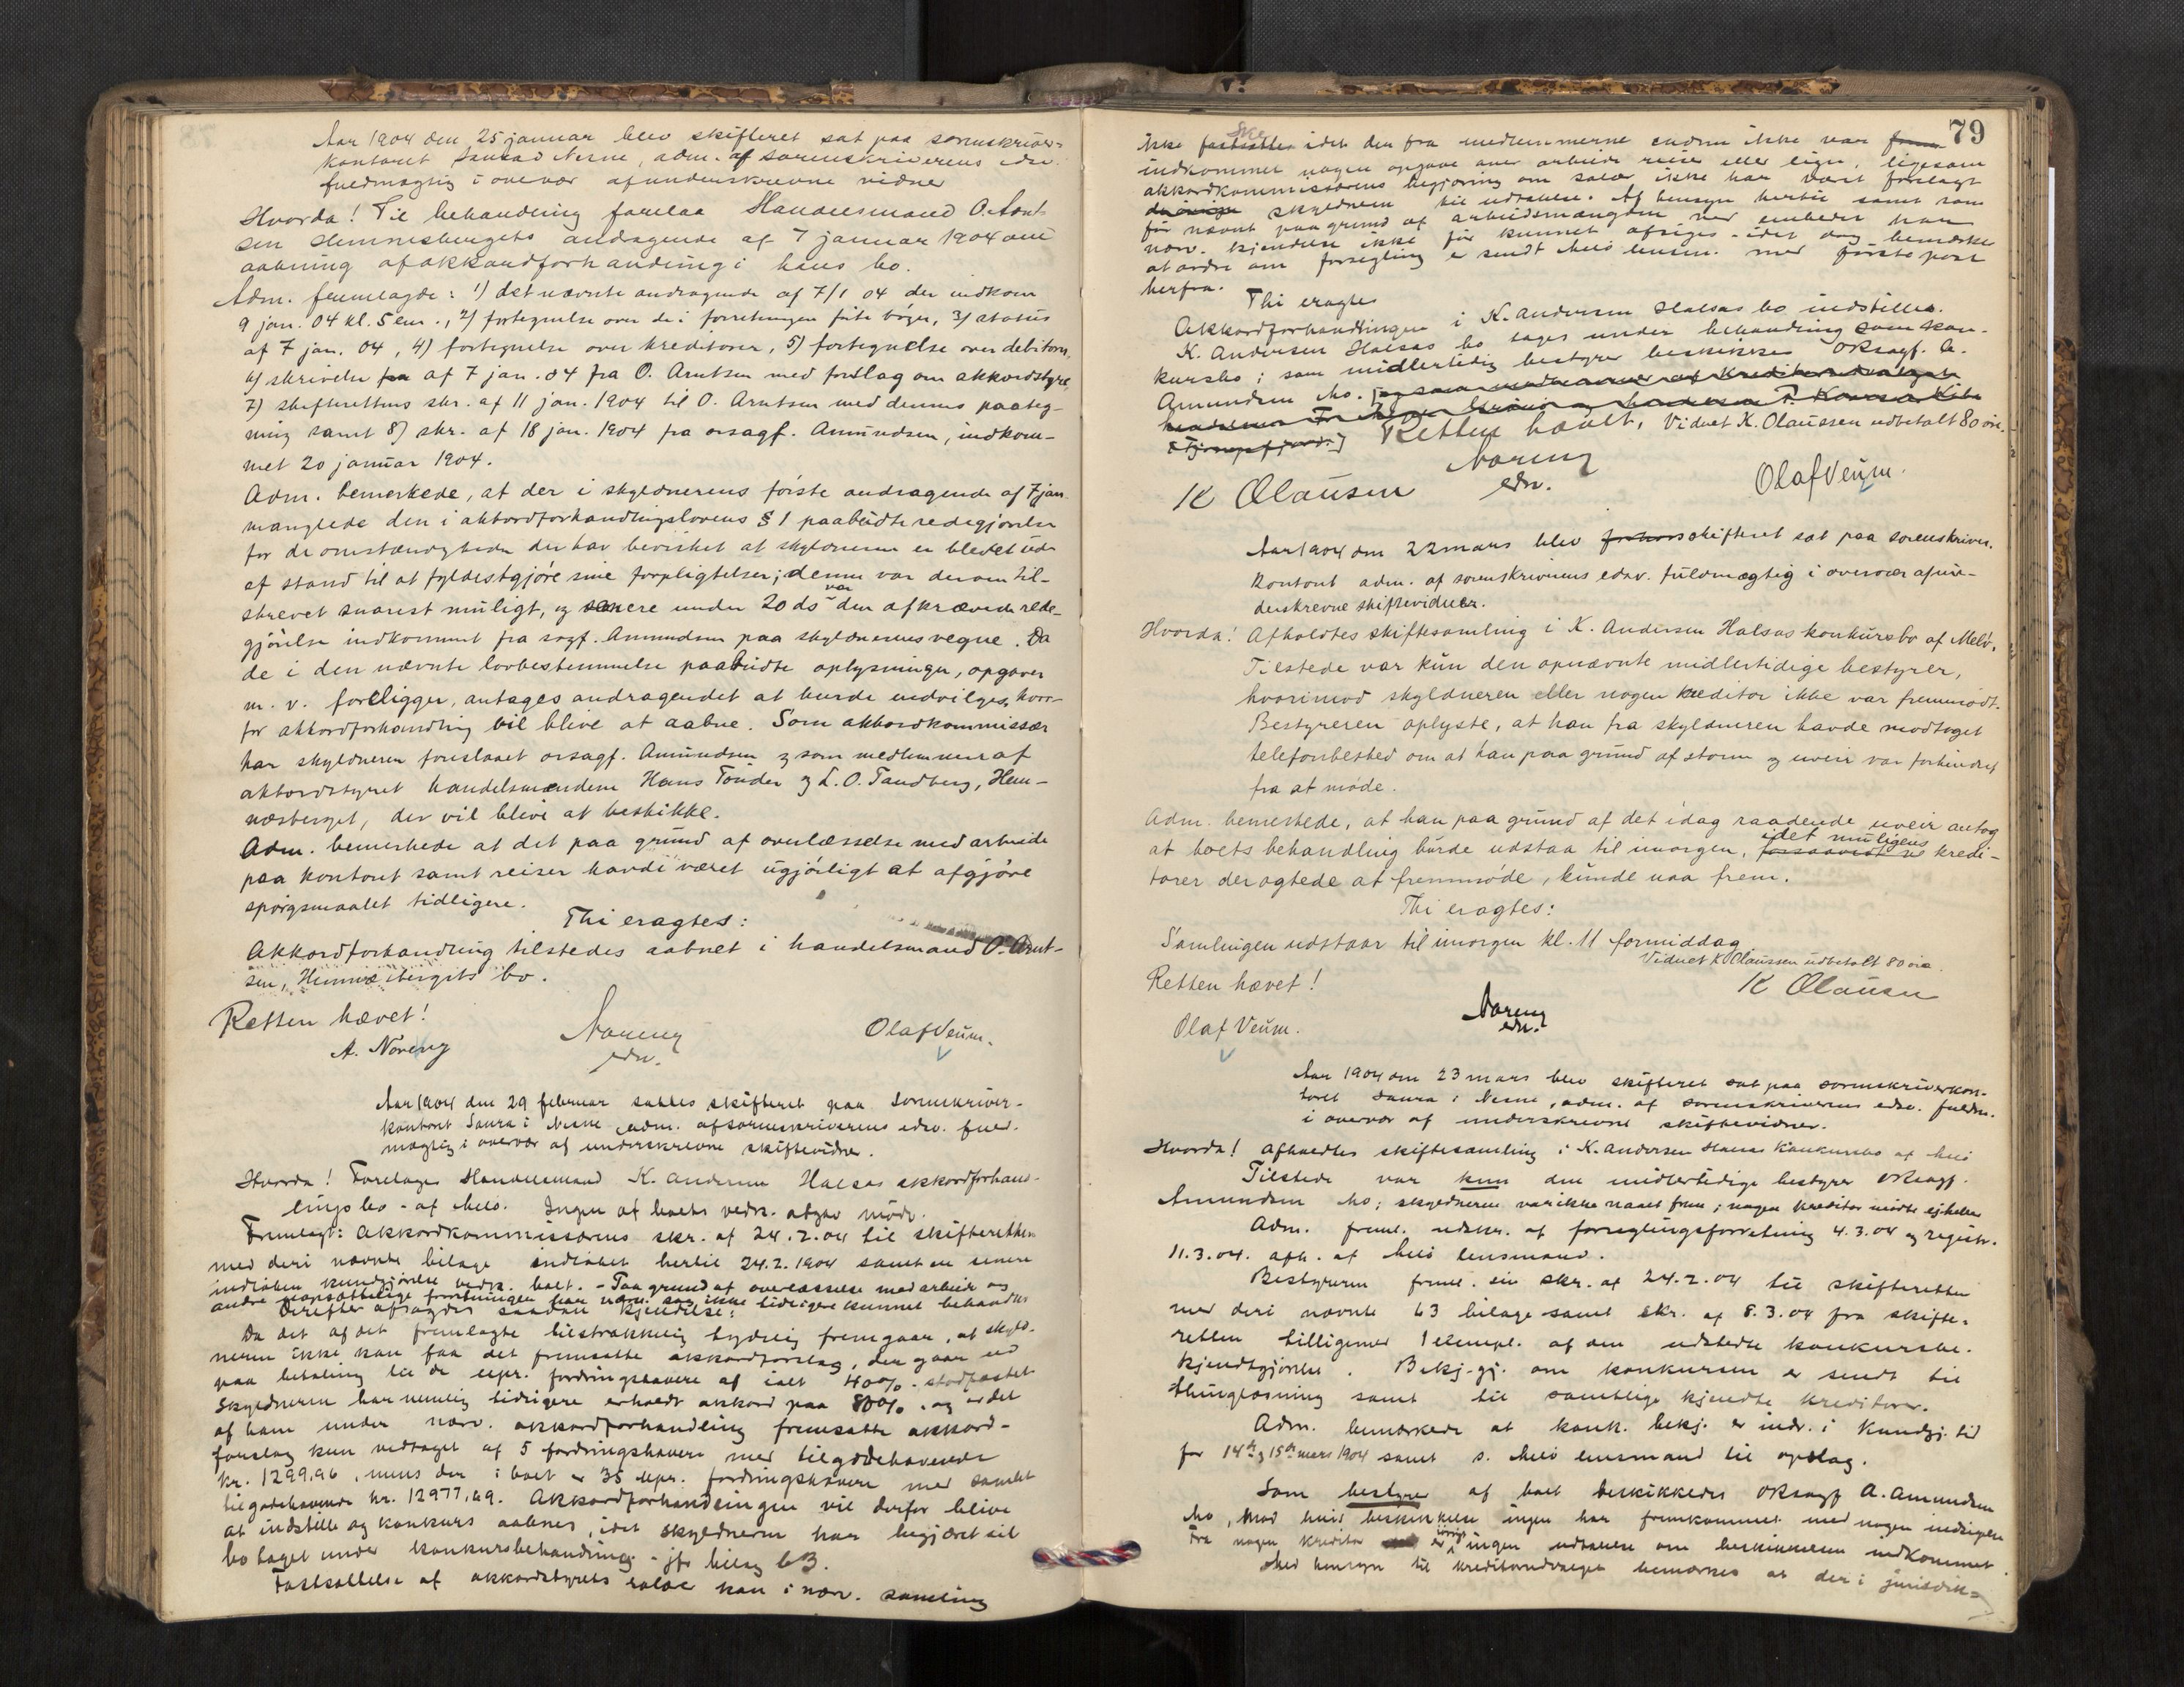 Aar 1904 den 25 januar blev skifteret sat paa sorenskriver=
kontoret Nesne, adm. af sorenskriverens edsv.
fuldmægtig i overvær af underskrevne vidner
Hvorda! Til behandling forelaa Handelsmand O. Arnt-
sen Hemnesbergets andragende af 7 januar 1904 om
aabning af akkordforhandling i hans bo.
Adm. fremlagde: 1) det nævnte andragende af 7/1 04 der indkom
9 jan. 04 kl. 5 em., 2) fortegnelse over de i forretningen førte bøger, 3) status
af 7 jan. 04, 4) fortegnelse over kreditorer, 5) fortegnelse over debitorer,
6) skrivelse fra af 7 jan. 04 fra O. Arntsen med forslag om akkordstyre,
7) skifterettens skr. af 11 jan. 1904 til O. Arntsen med dennes paateg-
ning samt 8) skr. af 18 jan. 1904 fra orsagf. Amundsen, indkom-
met 20 januar 1904.
Adm. bemerkede, at der i skyldnerens første andragende af 7 jan.
manglede den i akkordforhandlingslovens § 1 paabudte redegjørelse
for de omstændigheder der har bevirket at skyldneren er blevet ude
af stand til at fyldestgjøre sine forpligtelser; denne var derom til-
skrevet snarest muligt, og senere under 20 ds var den afkrævede rede-
gjørelse indkommet fra sagf. Amundsen paa skyldnerens vegne. Da
de i den nævnte lovbestemmelse paabudte oplysninger, opgaver
m. v. foreligger, antages andragendet at burde indvilges, hvor-
for akkordforhandling vil blive at aabne. Som akkordkommissær
har skyldneren foreslaaet orsagf. Amundsen og som medlemmer af
akkordstyret handelsmændene Hans Tonder og L. O. Tandberg, Hem-
nesberget, der vil blive at beskikke.
Adm. bemerkede at det paa grund af overlæsselse med arbeide
paa kontoret samt reiser havde været ugjørligt at afgjøre
spørgsmaalet tidligere.
Thi eragtes:
Akkordforhandling tilstedes aabnet i handelsmand O. Arnt-
sen, Hemnesbergets bo.
Retten hævet!
A. Noreng
Noreng
edsv.
Olaf Veum.
Aar 1904 den 29 februar sattes skifteret paa Sorenskriver-
kontoret Saura i Nesne adm. af sorenskriverens edsv. fuld-
mægtig i overvær af underskrevne skiftevidner.
Hvorda! Foretages Handelsmand K. Andersen Halsas akkordforhand-
lings bo - af Melø. Ingen af boets vedk. afgav møde.
Fremlagt: Akkordkommissærens skr. af 24.2.04 til skifteretten
med deri nævnte bilage indløbet hertil 24.2.1904 samt en senere
indløben kundgjørelse vedk. boet. - Paa grund af overlæsselse med arbeide og
andre uopsættelige forretninger har nærv. sag ikke tidligere kunnet behandles
Derefter afsagdes saadan kjendelse:
Da det af det fremlagte tilstrækkelig tydelig fremgaar, at skyld-
neren ikke kan faa det fremsatte akkordforslag, der gaar ud
paa betaling til de upr. fordringshavere af ialt 40% stadfæstet.
Skyldneren har nemlig tidligere erholdt akkord paa 80%. og er det
af ham under nærv. akkordforhandling fremsatte akkord-
forslag kun vedtaget af 5 fordringshavere med tilgodehavende
kr. 1299,96, mens der i boet er 35 upr. fordringshavere med samlet
tilgodehavende kr. 12977,69. Akkordforhandlingen vil derfor blive
at indstille og konkurs aabnes, idet skyldneren har begjæret sit
bo taget under konkursbehandling - jfr. bilag 63.
Fastsættelse af akkordstyrets salær kan i nærv. samling
79
ikke ske idet der fra medlemmerne endnu ikke var
indkommet nogen opgave over arbeide reise eller lign., ligesom
akkordkommissærens begjæring om salær ikke har været forelagt
skyldneren til udtalelse. Af hensyn hertil samt som
før nævnt paa grund af arbeidsmængden ved embedet har
nærv. kjendelse ikke før kunnet afsiges - idet dog bemærkes
at ordre om forsegling er sendt Melø lensm. med første post
herfra.
Thi eragtes
Akkordforhandlingen i K. Andersen Halsas bo indstilles.
K. Andersen Halsas bo tages under behandling som kon-
kursbo; som midlertidig bestyrer beskikkes oksagf. A.
Amundsen Mo.
Retten hævet, Vidnet K. Olaussen udbetalt 80 øre.
K Olausen
Noreng
edsv.
Olaf Veum.
Aar 1904 den 22 mars blev skifteret sat paa sorenskriver-
kontoret adm. af sorenskriverens edsv. fuldmægtig i overvær af un-
derskrevne skiftevidner.
Hvorda! Afholdtes skiftesamling i K. Andersen Halsas konkursbo af Melø.
Tilstede var kun den opnævnte midlertidige bestyrer,
hvorimod skyldneren eller nogen kreditor ikke var fremmødt.
Bestyreren oplyste, at han fra skyldneren havde modtaget
telefonbesked om at han paa grund af storm og uveir var forhindret
fra at møde.
Adm. bemerkede, at han paa grund af det idag raadende uveir antog
at boets behandling burde udstaa til imorgen, idet muligens kredi-
torer der agtede at fremmøde, kunde naa frem.
Thi eragtes:
Samlingen udstaar til imorgen kl. 11 formiddag.
Vidnet K Olaussen udbetalt 80 øre.
Retten hævet!
K Olausen
Noreng
edsv.
Olaf Veum.
Aar 1904 den 23 mars blev skifteret sat paa sorenskriverkon-
toret Saura i Nesne, adm. af sorenskriverens edsv. fuldm.
i overvær af underskrevne skiftevidner.
Hvorda! Afholdtes skiftesamling i K. Andersen Halsas Konkursbo af Melø
Tilstede var kun den midlertidige bestyrer oksagf.
Amundsen Mo; skyldneren var ikke naaet frem; nogen kreditor mødte ei heller
Adm. freml. udskr. af forseglingsforretning 4.3.04 og registr.
11.3.04. afh. af Melø lensmand.
Bestyreren freml. sin skr. af 24.2.04 til skifteretten
med deri nævnte 63 bilage samt skr. af 8.3.04 fra skifte-
retten tilligemed 1 exempl. af den udstedte konkursbe-
kjendtgjørelse. Bekj.-gj. om konkursen er sendt til
thinglæsning samt til samtlige kjendte kreditorer.
Adm. bemærkede at konk. bekj. er indr. i Kundgj. tid
for 14de og 15de mars 1904 samt s. Melø lensmand til opslag.
Som bestyrer af boet beskikkedes oksagf A. Amundsen
Mo, mod hvis beskikkelse ingen har fremkommet med nogen indsigelse
Fra nogen kreditor er øvrigt ingen udtalelse om beskikkelsen indkommet.
Med hensyn til kreditorudvalget bemærkes at der i jurisdik=